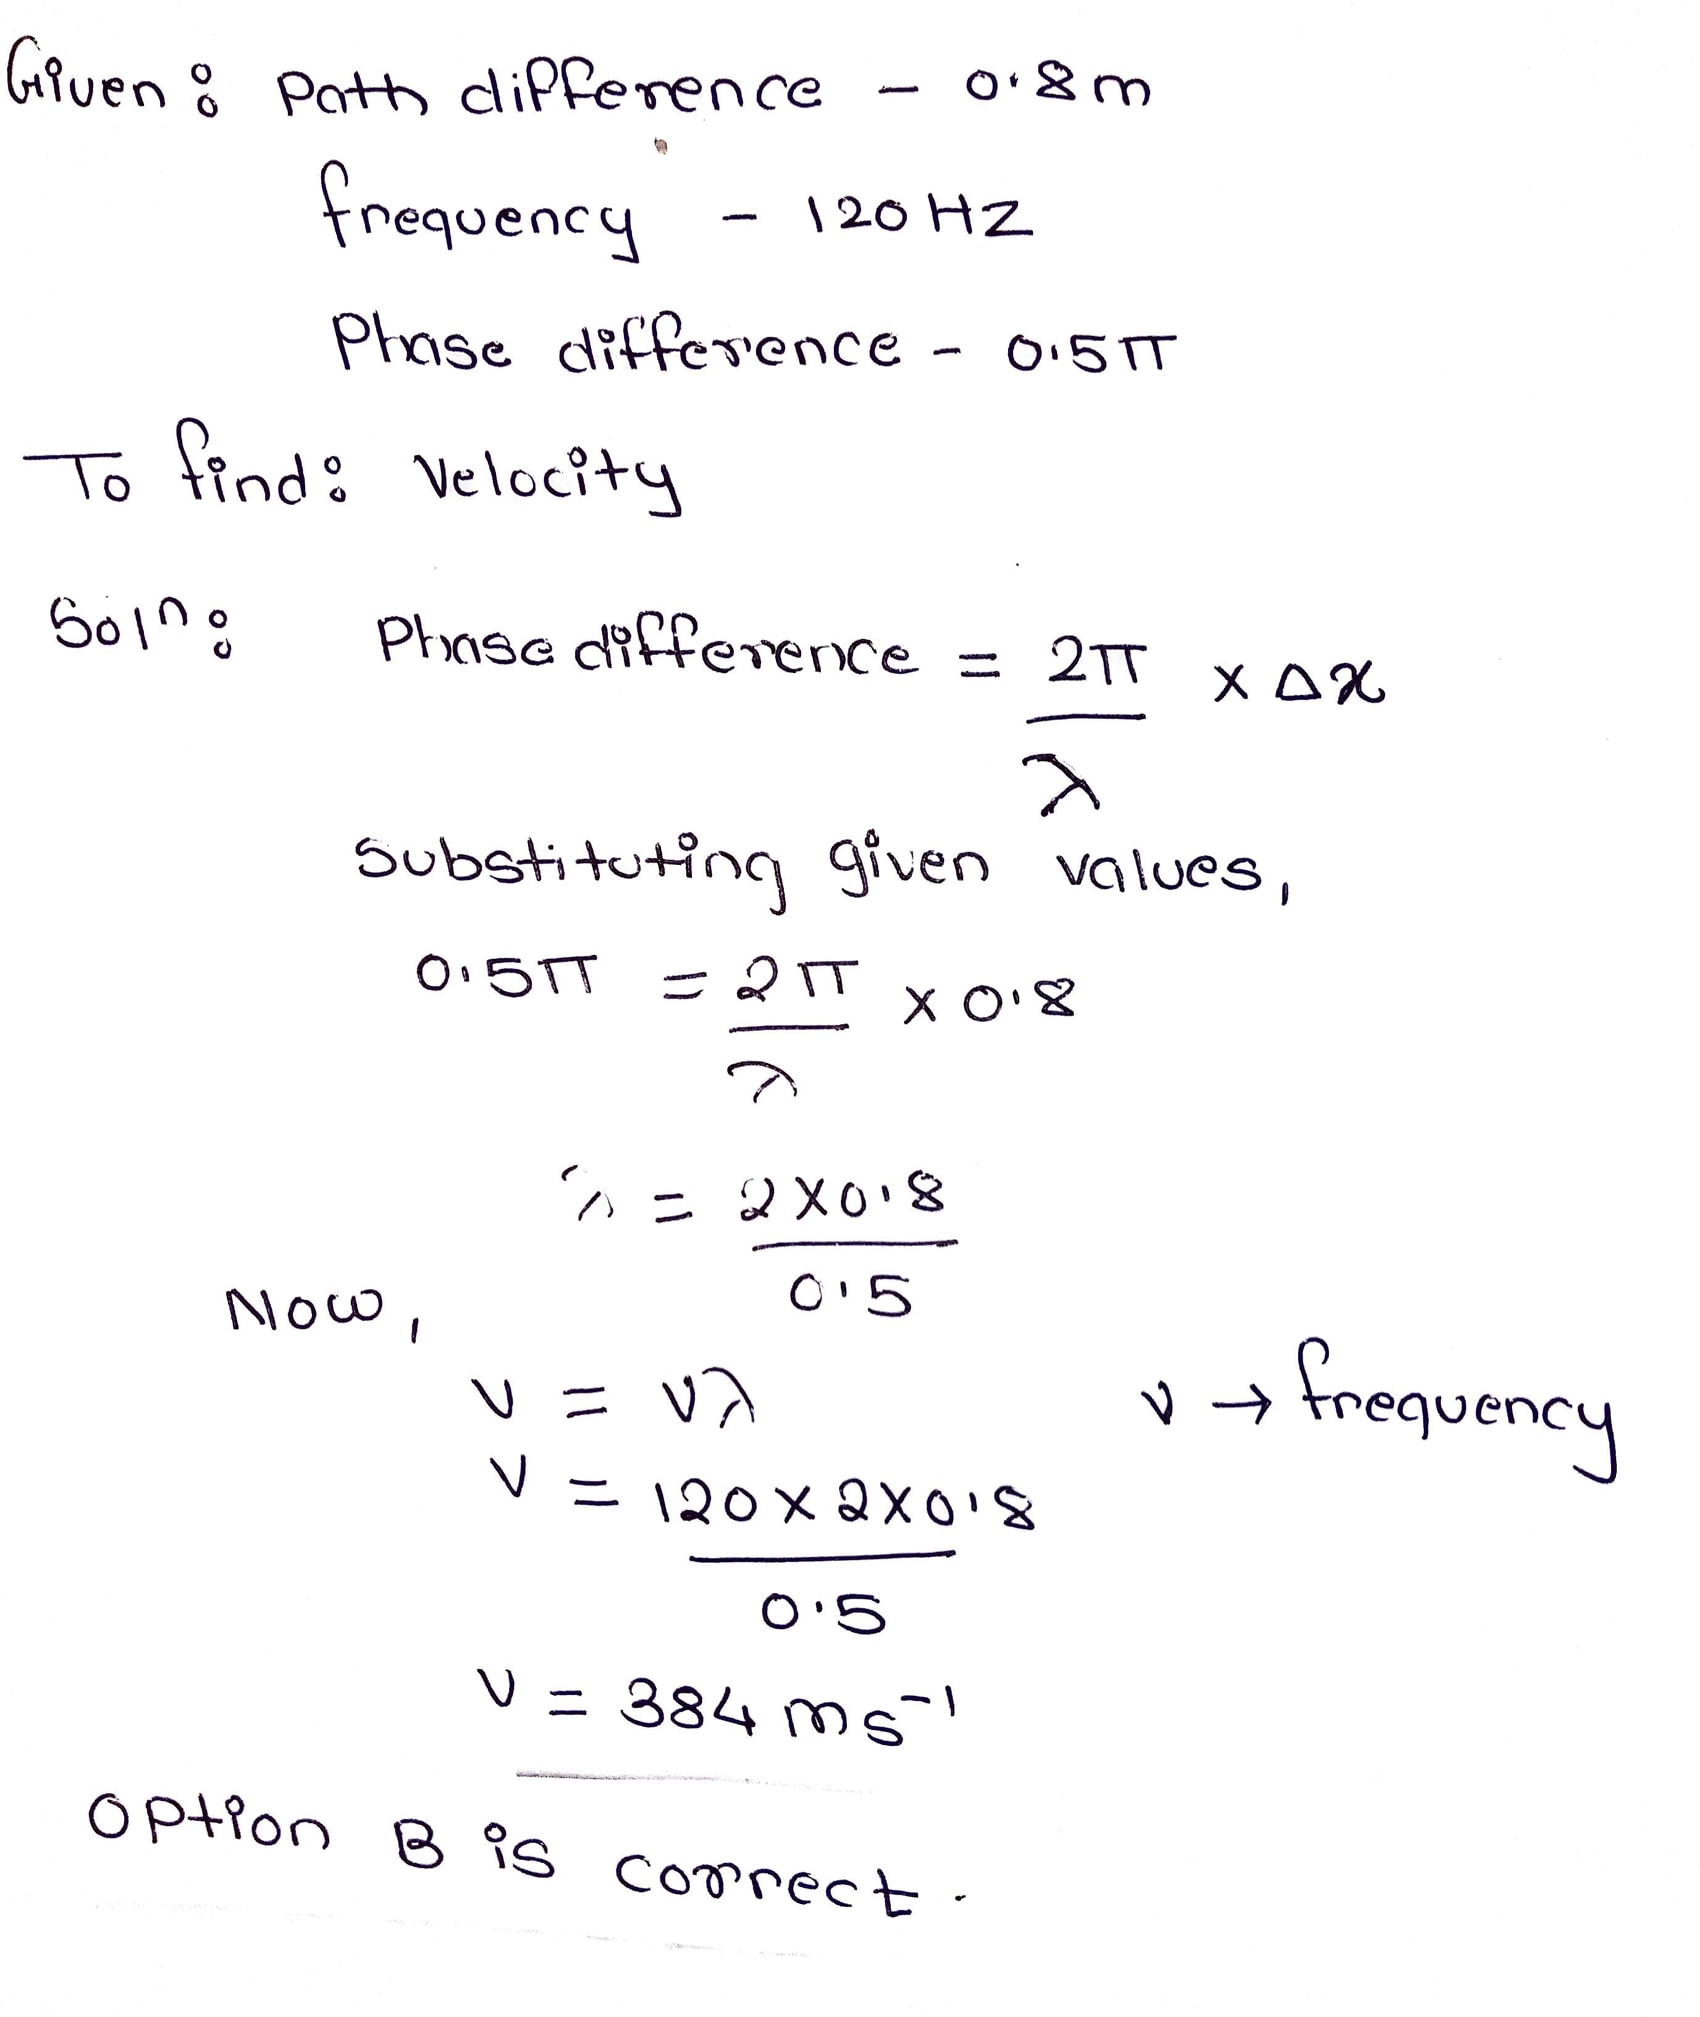 Given: Path difference - 0.8m
frequency - 120 HZ
Phase difference - 0.5π
To find: Velocity
Soln: Phase difference = 2π/λ × Δx
substituting given values,
0.5π = 2π/λ × 0.8
λ = 2×0.8/0.5
Now,
v = νλ ν → frequency
v = 120 × 2×0.8/0.5
v = 384 ms⁻¹
Option B is correct.